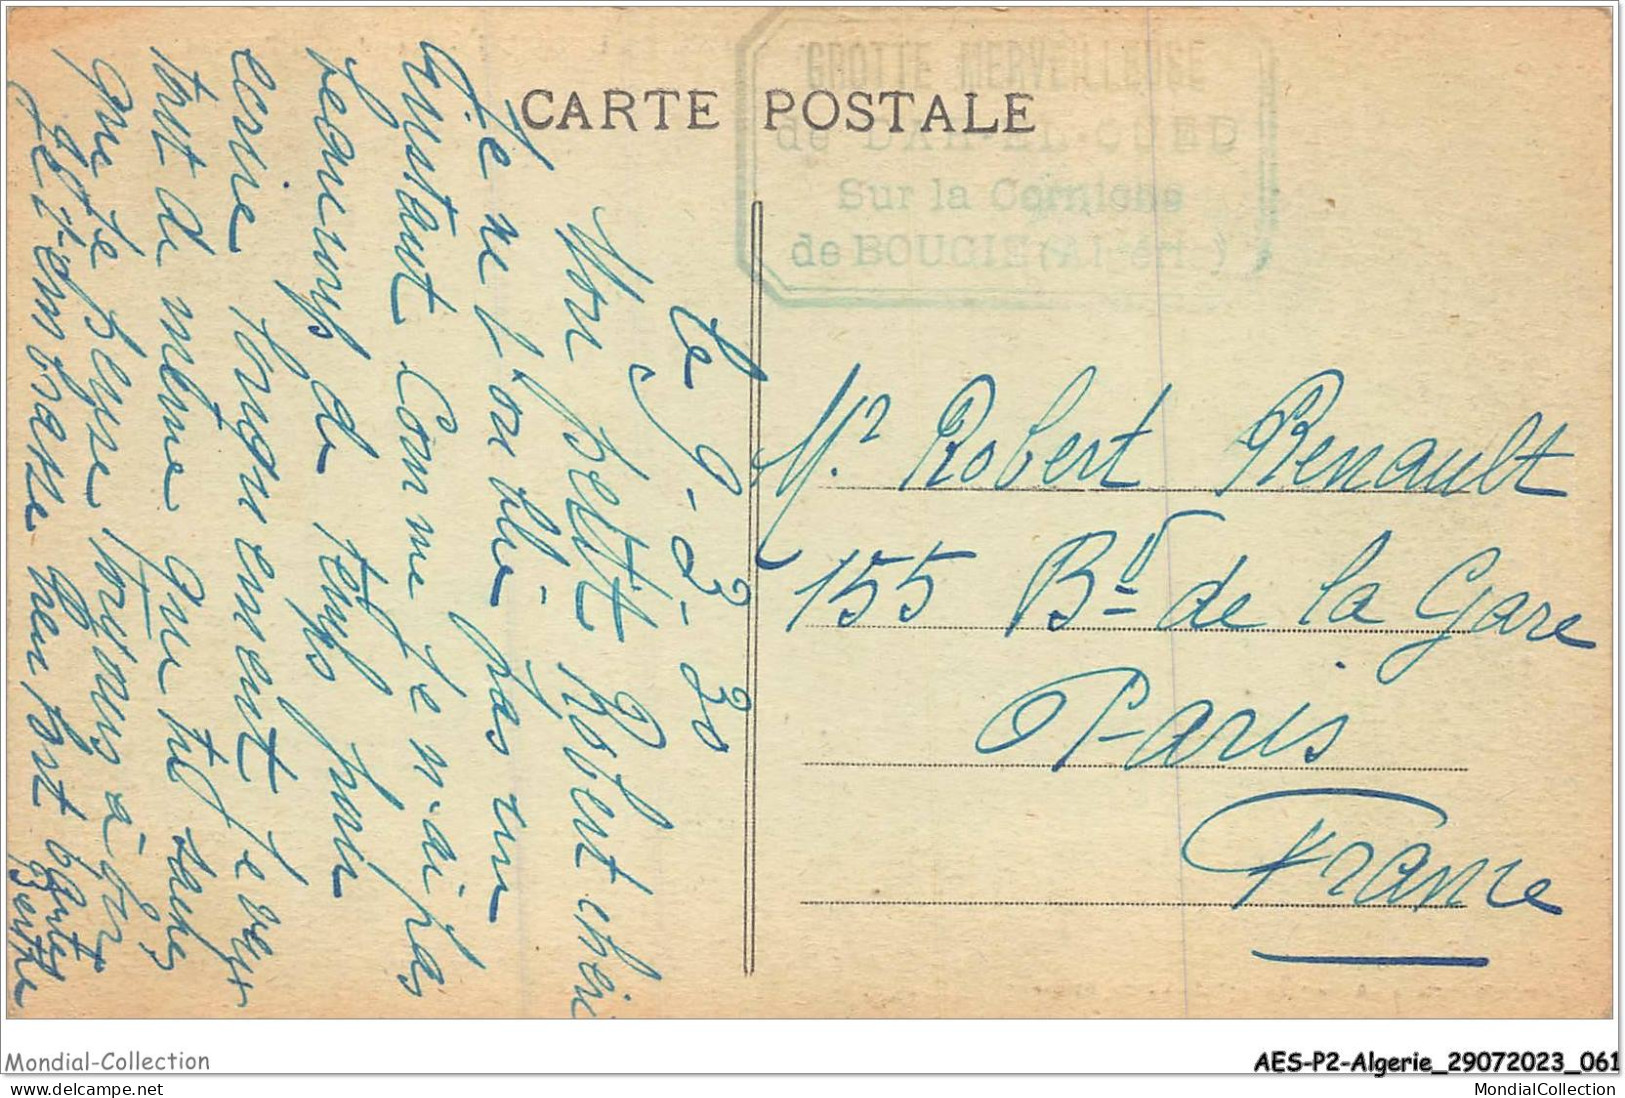 CARTE POSTALE
GROTTE MERVEILLEUSE
de DAR-EL-OUED
Sur la Corniche
de BOUGIE (Algérie)
le 9-3-30
Mon petit Robert cheri
Je ne t'oublie pas un
instant comme je n'ai pas
beaucoup de temps pour
ecrire longuement je veux
tout de même que tu saches
que je pense toujours à toi
et t'embrasse bien fort
Berthe
Mr Robert Renault
155 Bd de la Gare
Paris
France
Mondial-Collection
AES-P2-Algerie_29072023_061
MondialCollection